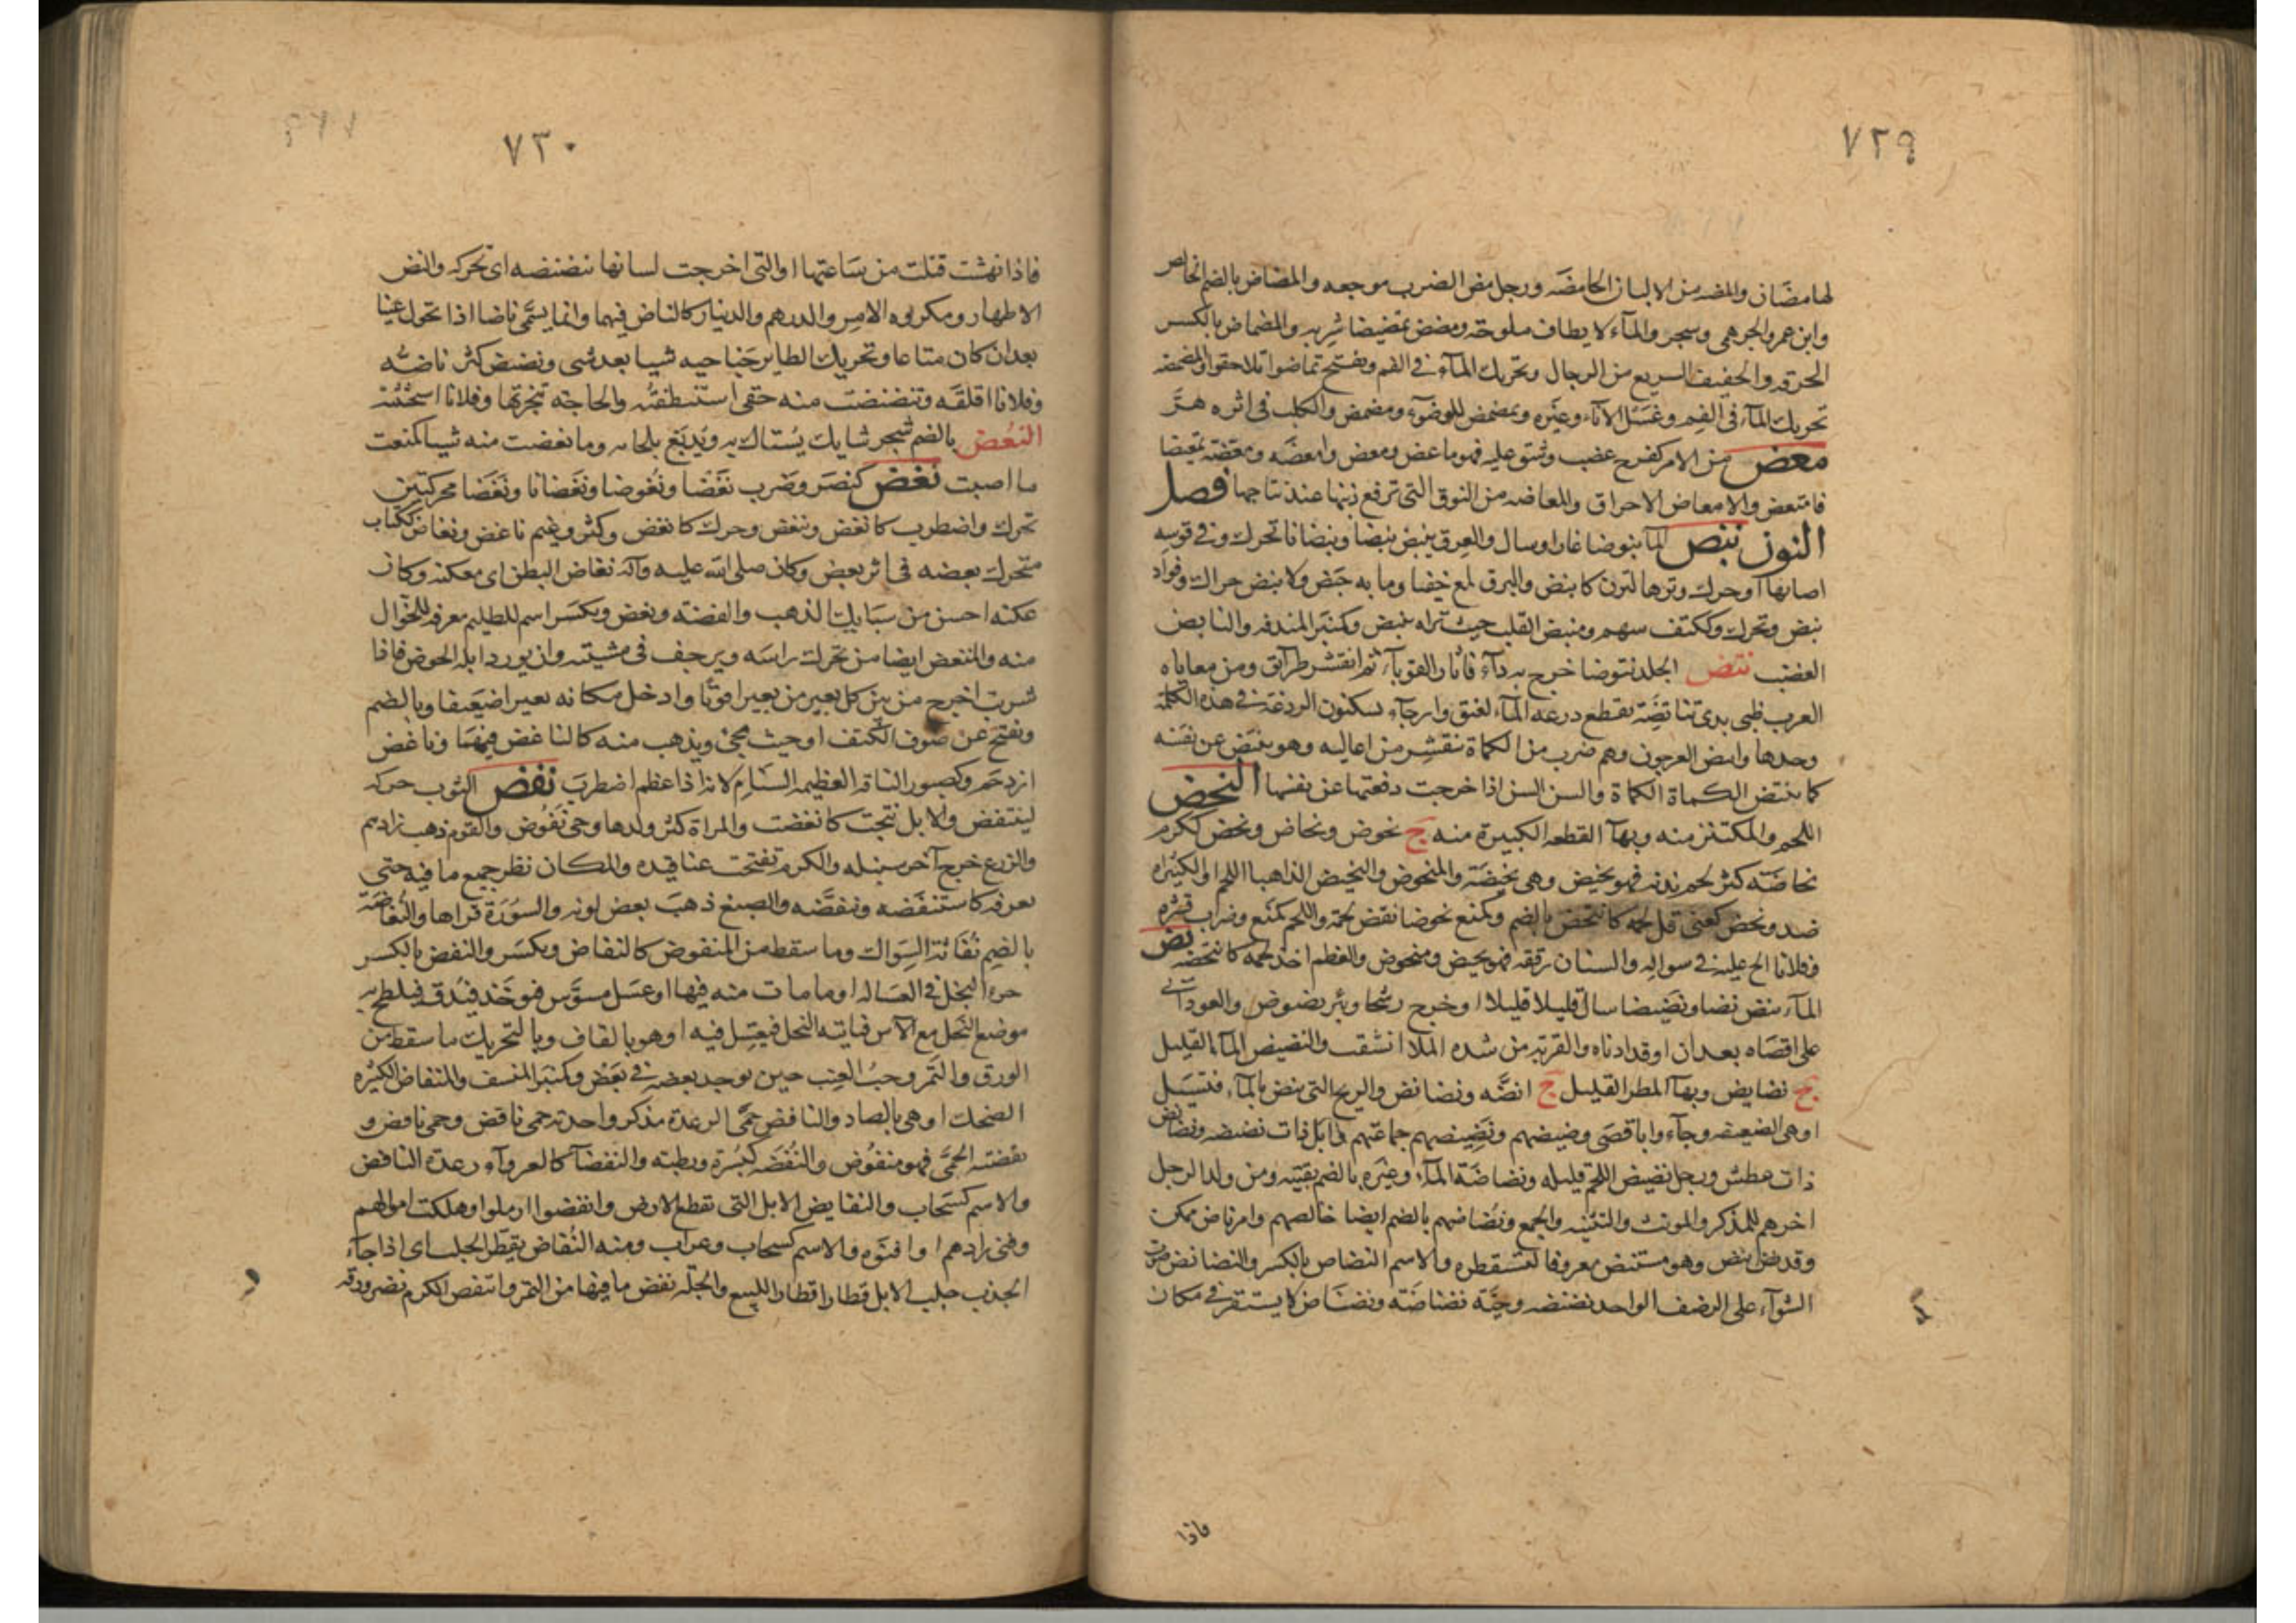 ٧٢٩
لها مضان والمضه من الالبان الحامضة ورجل مض الضرب موجعه والمضاض بالضم الخالص
وابن عمرو الجرهمي وشجر والمآء لا يطاف ملوحة ومضض تمضيضا شربه والمضماض بالكسر
الحرقه والخفيف السريع من الرجال وتحريك المآء في الفم ويفتح تماضوا تلاحقوا والمضمضه
تحريك المآء في الفم وغسل الانآء وغيره وتمضمض للوضوء ومضمض والكلب في اثره هرّ
معض من الامر كفرح غضب وشق عليه فهو ماعض ومعض وامعضه ومعضة تمعيضا
فامتعض والامعاض الاحراق والمعاضه من النوق التي ترفع ذنبها عند نتاجها فصل
النون نبض المآ نبوضا غار او سال والعرق ينبض نبضا ونبضانا تحرك وفي قوسه
اصابها او حرك وترها لترن كانبض والبرق لمع خفيا وما به حبض ولا نبض حراك وفواد
نبض وتحرك وككتف سهم ومنبض القلب حيث تراه ينبض وكمنبر المندفه والنابض
الغضب نتض الجلد نتوضا خرج به دآء فاثار القوبآء ثم انقشر طرآئق ومن معاياة
العرب ظبي بذي تناتضة يقطع ردغه المآء لعنق وارخآء يسكنون الردغة في هذه الكلمة
وحدها وانتض العرجون وهم ضرب من الكماة تنقشر من اعاليه وهو ينتض عن نفسه
كما تنتض الكماة الكماة والسن السن اذا خرجت دفعتها عن نفسها النحض
اللحم والمكتنز منه وبهآ القطعه الكبيرة منه ج نحوض ونحاض ونحض ككرم
نحاضة كثر لحم بدنه فهو نحيض وهي نحيضة والمنحوض والنحيض الذاهبا اللحم او الكثيراه
ضد ونحض كعني قل لحمه كانتحض بالضم وكمنع نحوضا نقض لحمة واللحم كمنع وضرب قشره
وفلانا الح عليه في سواله والسنان رققه فهو نحيض ومنحوض والعظم اخذ لحمه كانتحضه نض
المآء ينض نضا ونضيضا سال قليلا قليلا او خرج رشحا وبئر نضوض والعود اتى
على اقصاه بعد ان اوقد ادناه والقربة من شده الملا انشقت والنضيض المآء القليل
ج نضايض وبهآ المطر القليل ج انضّه ونضائض والريح التي تنض بالمآء فتسيل
او هي الضعيفه وجآءوا باقصى نضيضهم ونضيضهم جماعتهم وابل ذات نضيضه ونضائض
ذات عطش ورجل نضيض اللحم قليله ونضاضة المآء وغيره بالضم بقيته ومن ولد الرجل
اخرهم للمذكر والمونث والتثنيه والجمع ونضاضهم بالضم ايضا خالصهم وامر ناض ممكن
وقد نض ينض وهو مستنض معروفا استقطره والاسم النضاض بالكسر والنضائض صوت
الشوآء على الرضف الواحد نضيضه وحيّة نضناضة ونضناض لا يستقر في مكان
فاذا
٧٣٠
فاذا نهشت قتلت من ساعتها او التي اخرجت لسانها تنضنضه اي تحركه والنض
الاظهار ومكروه الامر والدرهم والدينار كالناض فيهما وانما يسمّى ناضا اذا تحول عينا
بعد ان كان متاعا وتحريك الطاير جناحيه شيا بعد شي ونضنض كثر ناضّه
وفلانا اقلقه وتنضنضت منه حقي استنطقته والحاجه تنجزتها وفلانا استحثثته
النعض بالضم شجر شايك يستاك به ويدبغ بلحائه وما نعضت منه شيا كمنعت
ما اصبت نغض كنصر وضرب نغضا ونغوضا ونغضانا ونغضا محركتين
تحرك واضطرب كانغض وتنغض وحرك كانغض وكثر وغيم ناغض ونغاض ككتاب
متحرك بعضه في اثر بعض وكان صلى الله عليه وآله نغاض البطن اي معكنه وكان
عكنه احسن من سبايك الذهب والفضة ونغض ويكسر اسم للظليم معرفه للجوال
منه والنغض ايضا من تحرك راسه ويرجف في مشيته وان يورد ابله الحوض فاذا
شربت اخرج من بين كل بعيرين بعيرا قويّا وادخل مكانه بعيرا ضعيفا وبالضم
ويفتح غرضوف الكتف او حيث يجيء ويذهب منه كالناغض فيهما وناغض
ازدحم وكصبور الناقه العظيمه السنام لانه اذا عظم اضطرب نفض الثوب حركه
لينتفض والابل نتجت كانفضت والمراة كثر ولدها وهي نفوض والقوم ذهب زادهم
والزرع خرج آخر سنبله والكرم تفتحت عناقيده والمكان نظر جميع ما فيه حتى
يعرفه كاستنفضه وتنفضه والصبغ ذهب بعض لونه والسورة قراها والنفاضة
بالضم نفاثة السواك وما سقط من المنفوض كالنفاض ويكسر والنفض بالكسر
خرء النحل في العسالة او ما مات منه فيها او عسل يسوس فيوخذ فيدق فيلطخ به
موضع النحل مع الآس فياتيه النحل فيعسل فيه او هو بالقاف وبالتحريك ما سقط من
الورق والثمر وحب العنب حين يوجد بعضه في بعض وكمنبر المنسف والمنفاض الكثيره
الضحك او هي بالصاد والنافض حمّى الرعدة مذكر واخذته حمى نافض وحمى نافض و
نفضته الحمّى فهو منفوض والنفضه كبسرة ورطبه والنفضآ كالعروآء رعدة النافض
والاسم كسحاب والنفايض الابل التي تقطع الارض وانفضوا ارملوا او هلكت اموالهم
وفنى زادهم او افنوه والاسم كسحاب وغراب ومنه النفاض يقطر الجلب اي اذا جآء
الجدب جلب الابل قطارا قطارا للبيع والجلّة نفض ما فيها من التمر وانتفض الكرم نضر ورقه